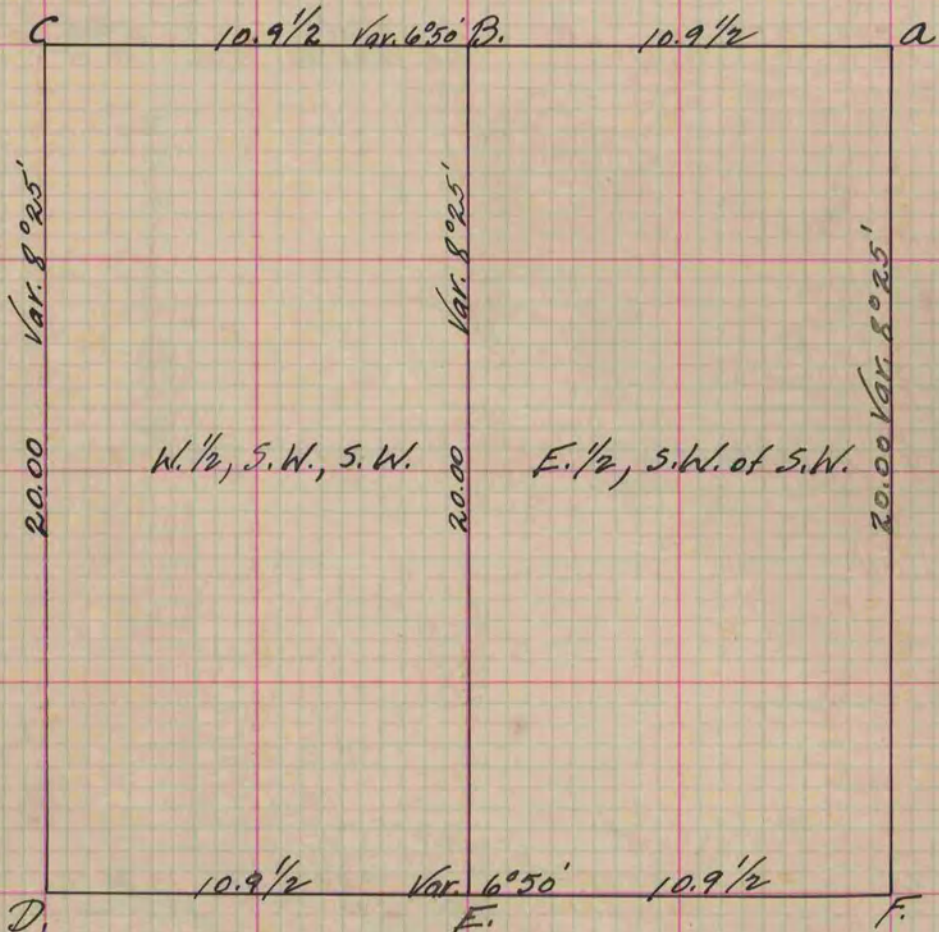 C 10.9 1/2 Var. 6°50' B. 10.9 1/2 a
Var. 8°25'
20.00
Var. 8°25'
20.00
20.00 Var. 8°25'
W. 1/2, S.W., S.W.
E. 1/2, S.W. of S.W.
10.9 1/2 Var. 6°50' 10.9 1/2
D. E. F.